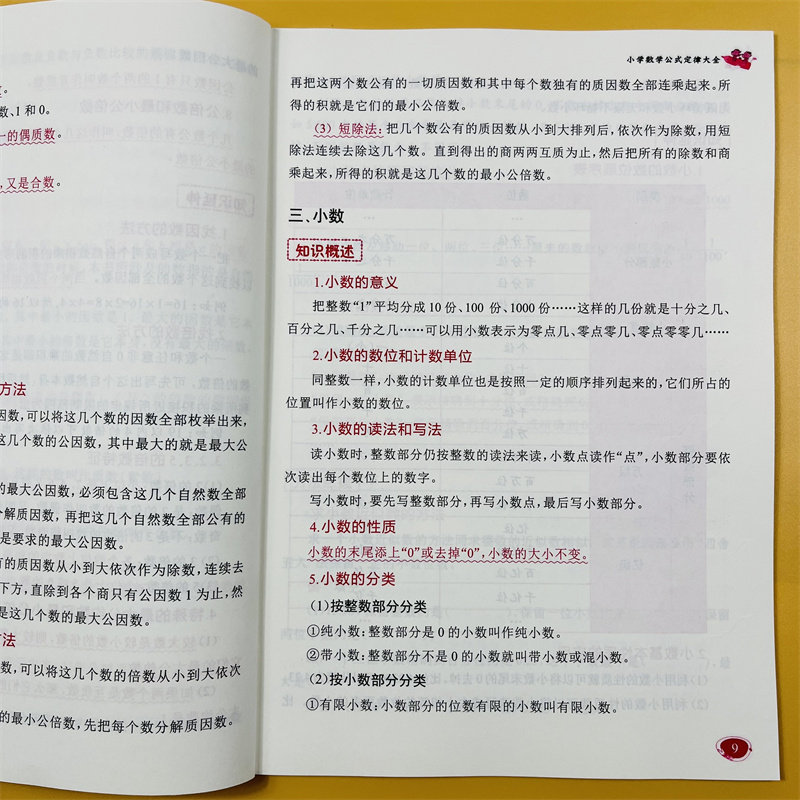 。
数、1和0。
一的偶质数。
，又是合数。
方法
因数，可以将这几个数的因数全部枚举出来，
这几个数的公因数，其中最大的就是最大公
的最大公因数，必须包含这几个自然数全部
分解质因数，再把这几个自然数全部公有的
是要求的最大公因数。
有的质因数从小到大依次作为除数，连续去
下方，直除到各个商只有公因数1为止，然
是这几个数的最大公因数。
方法
数，可以将这几个数的倍数从小到大依次
的最小公倍数，先把每个数分解质因数。
小学数学公式定律大全
再把这两个数公有的一切质因数和其中每个数独有的质因数全部连乘起来。所
得的积就是它们的最小公倍数。
(3) 短除法：把几个数公有的质因数从小到大排列后，依次作为除数，用短
除法连续去除这几个数。直到得出的商两两互质为止，然后把所有的除数和商
乘起来，所得的积就是这几个数的最小公倍数。
三、小数
知识概述
1.小数的意义
把整数“1”平均分成10份、100份、1000份……这样的几份就是十分之几、
百分之几、千分之几……可以用小数表示为零点几、零点零几、零点零零几……
2.小数的数位和计数单位
同整数一样，小数的计数单位也是按照一定的顺序排列起来的，它们所占的
位置叫作小数的数位。
3.小数的读法和写法
读小数时，整数部分仍按整数的读法来读，小数点读作“点”，小数部分要依
次读出每个数位上的数字。
写小数时，要先写整数部分，再写小数点，最后写小数部分。
4.小数的性质
小数的末尾添上“0”或去掉“0”，小数的大小不变。
5.小数的分类
(1)按整数部分分类
①纯小数：整数部分是0的小数叫作纯小数。
②带小数：整数部分不是0的小数就叫带小数或混小数。
(2)按小数部分分类
①有限小数：小数部分的位数有限的小数叫有限小数。
9